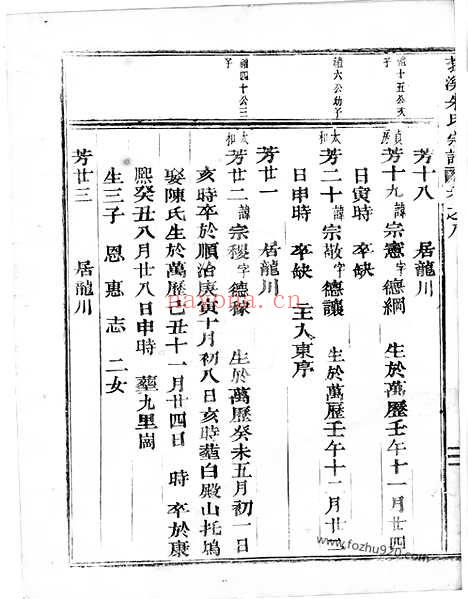 芳十八 居龍川
芳十九 諱宗憲字德綱 生於萬歷壬午十一月廿四
日寅時 卒缺
芳二十 諱宗敬字德讓 生於萬歷壬午十二月廿三
日申時 卒缺 主人東序
芳廿一 居龍川
芳廿二 諱宗稷字德豫 生於萬歷癸未五月初一日
亥時卒於順治庚寅十月初八日亥時葬白殿山托塢
娶陳氏生於萬歷己丑十一月廿四日 時 卒於康
熙癸丑八月廿八日申時 葬九里崗
生三子 恩 惠 志 二女
芳廿三 居龍川
naxona.cn
www.fozhu920.com